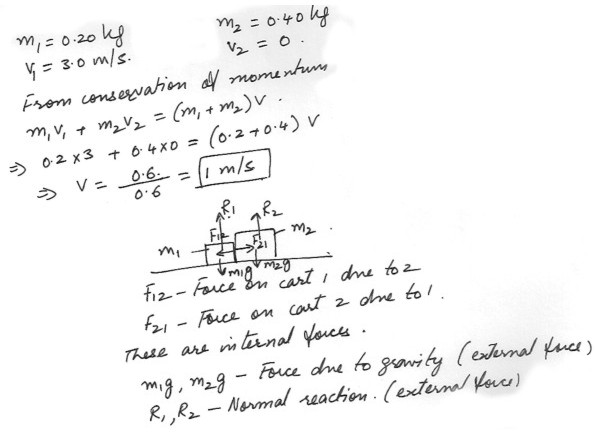 m₁ = 0.20 kg
m₂ = 0.40 kg
V₁ = 3.0 m/s.
V₂ = 0.
From conservation of momentum
m₁V₁ + m₂V₂ = (m₁ + m₂)V.
⇒ 0.2 x 3 + 0.4 x 0 = (0.2 + 0.4) V
⇒ V = 0.6. / 0.6 = 1 m/s
R₁ R₂
m₁ F12 F21 m₂
m₁g m₂g
F12 – Force on cart 1 due to 2
F21 – Force on cart 2 due to 1.
These are internal forces.
m₁g, m₂g – Force due to gravity (external force)
R₁, R₂ – Normal reaction. (external force)